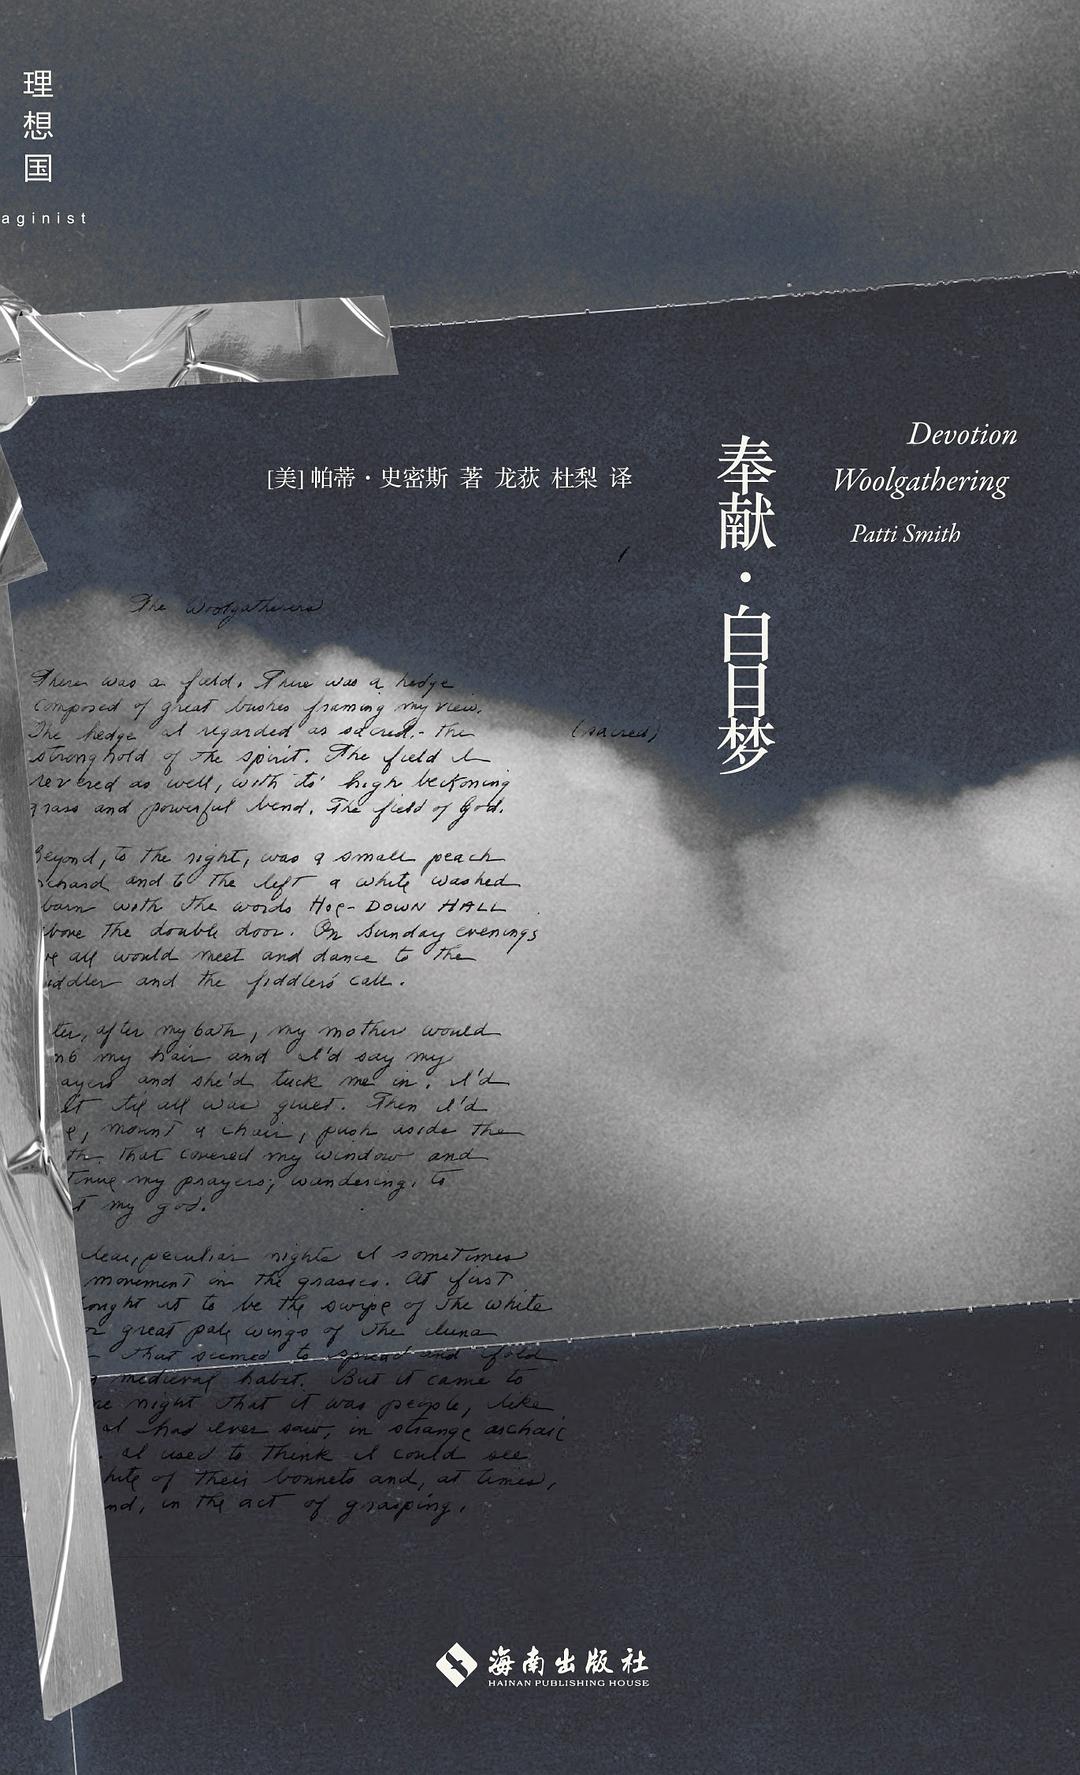 理想国
aginist
Devotion
Woolgathering
Patti Smith
奉献·白日梦
[美] 帕蒂·史密斯 著 龙荻 杜梨 译
The Woolgatherers
There was a field. There was a hedge
composed of great bushes framing my view.
The hedge I regarded as sacred - the
(sacred)
stronghold of the spirit. The field I
revered as well, with its' high beckoning
grass and powerful bend. The field of God.
Beyond, to the right, was a small peach
rchard and to the left a white washed
barn with the words HOE-DOWN HALL
above the double door. On Sunday evenings
we all would meet and dance to the
iddler and the fiddlers' call.
ter, after my bath, my mother would
mb my hair and I'd say my
ayers and she'd tuck me in. I'd
it til all was quiet. Then I'd
e, mount a chair, push aside the
th that covered my window and
tinue my prayers, wandering, to
t my god.
clear, peculiar nights I sometimes
movement in the grasses. At first
ought it to be the swipe of the white
or great pale wings of the luna
that seemed to spread and fold
medieval habit. But it came to
me night that it was people, like
I had ever saw, in strange archaic
I used to think I could see
hite of their bonnets and, at times,
nd, in the act of grasping.
海南出版社
HAINAN PUBLISHING HOUSE